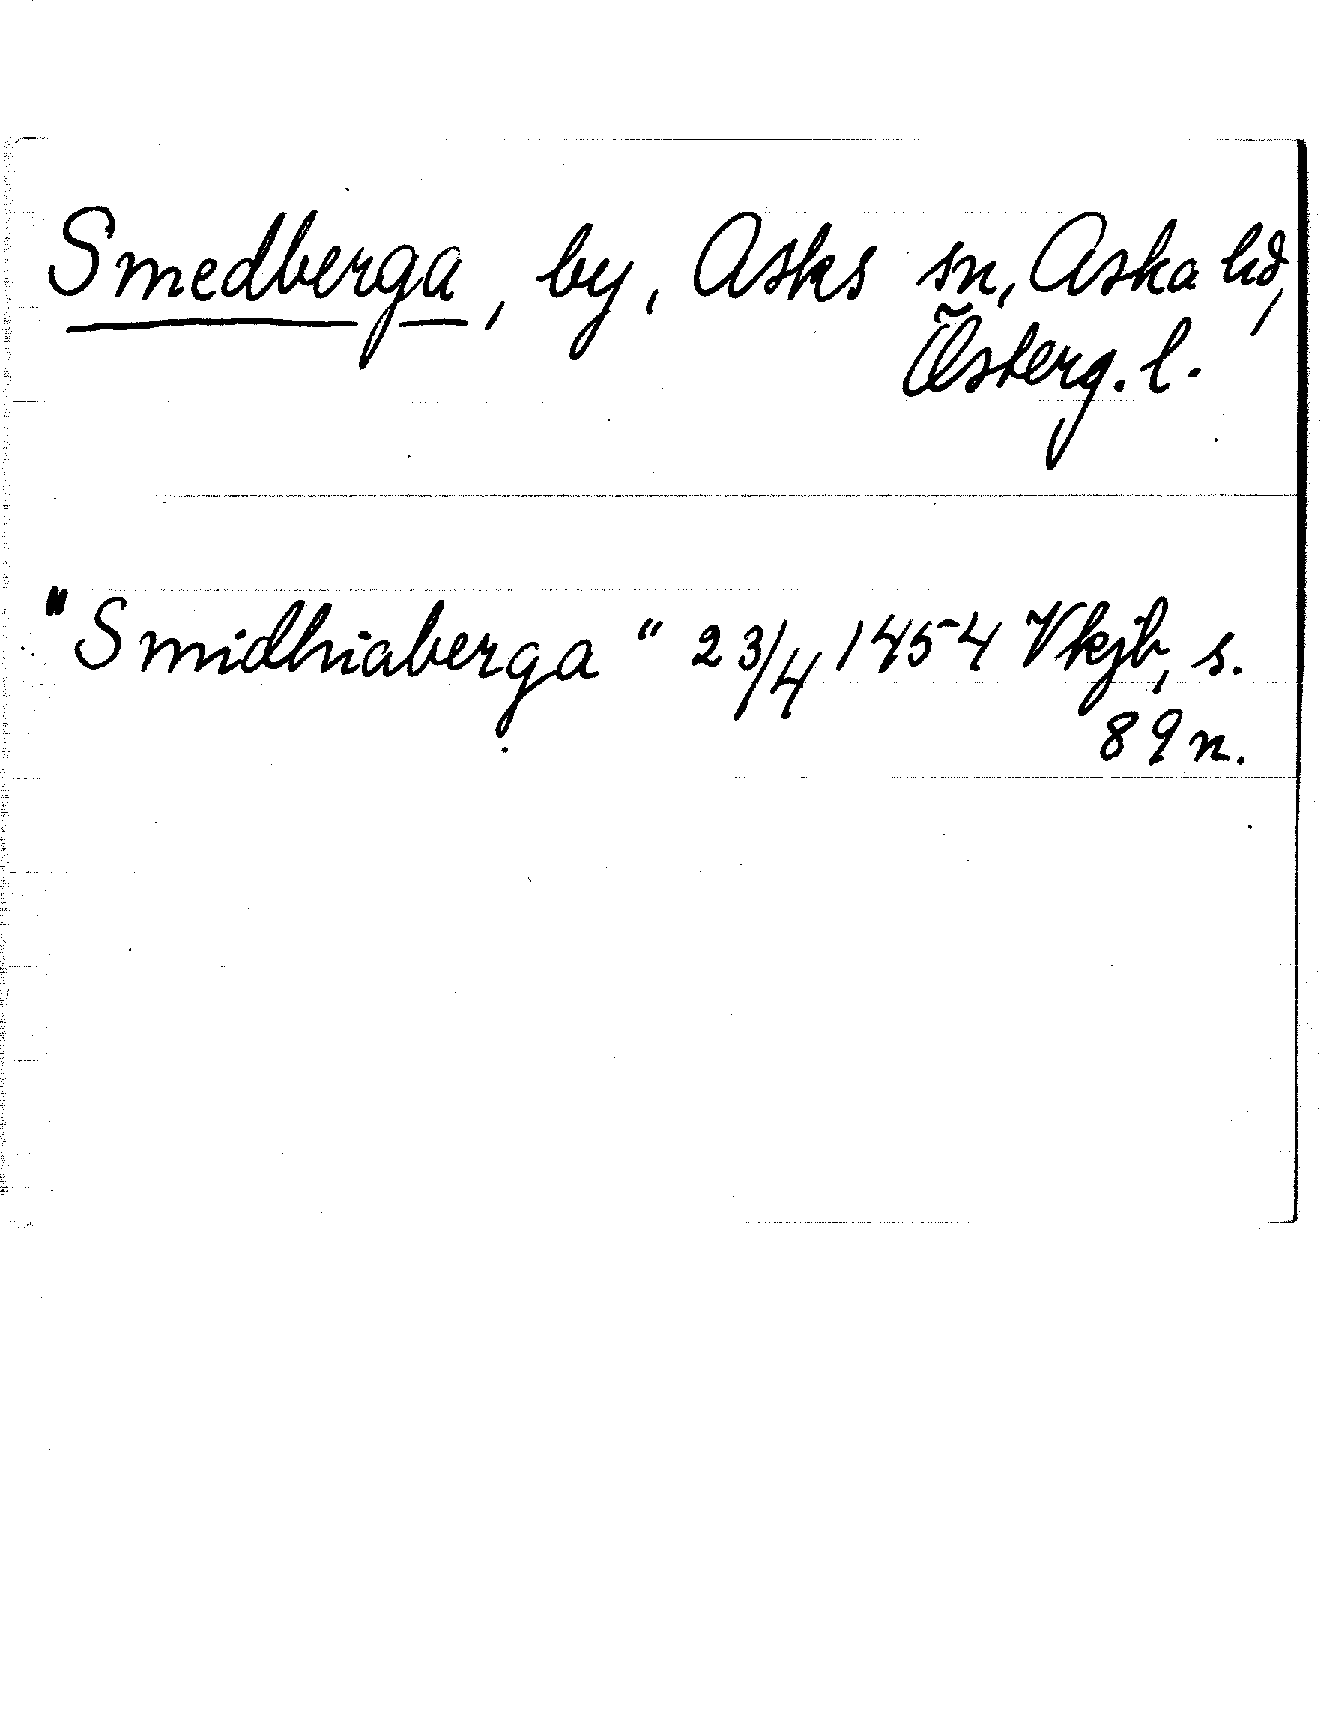 Smedberga, by, Asks sn, Aska hd,
Österg. l.
"Smidhiaberga" 23/4 1454 Vkjb, s.
89 n.